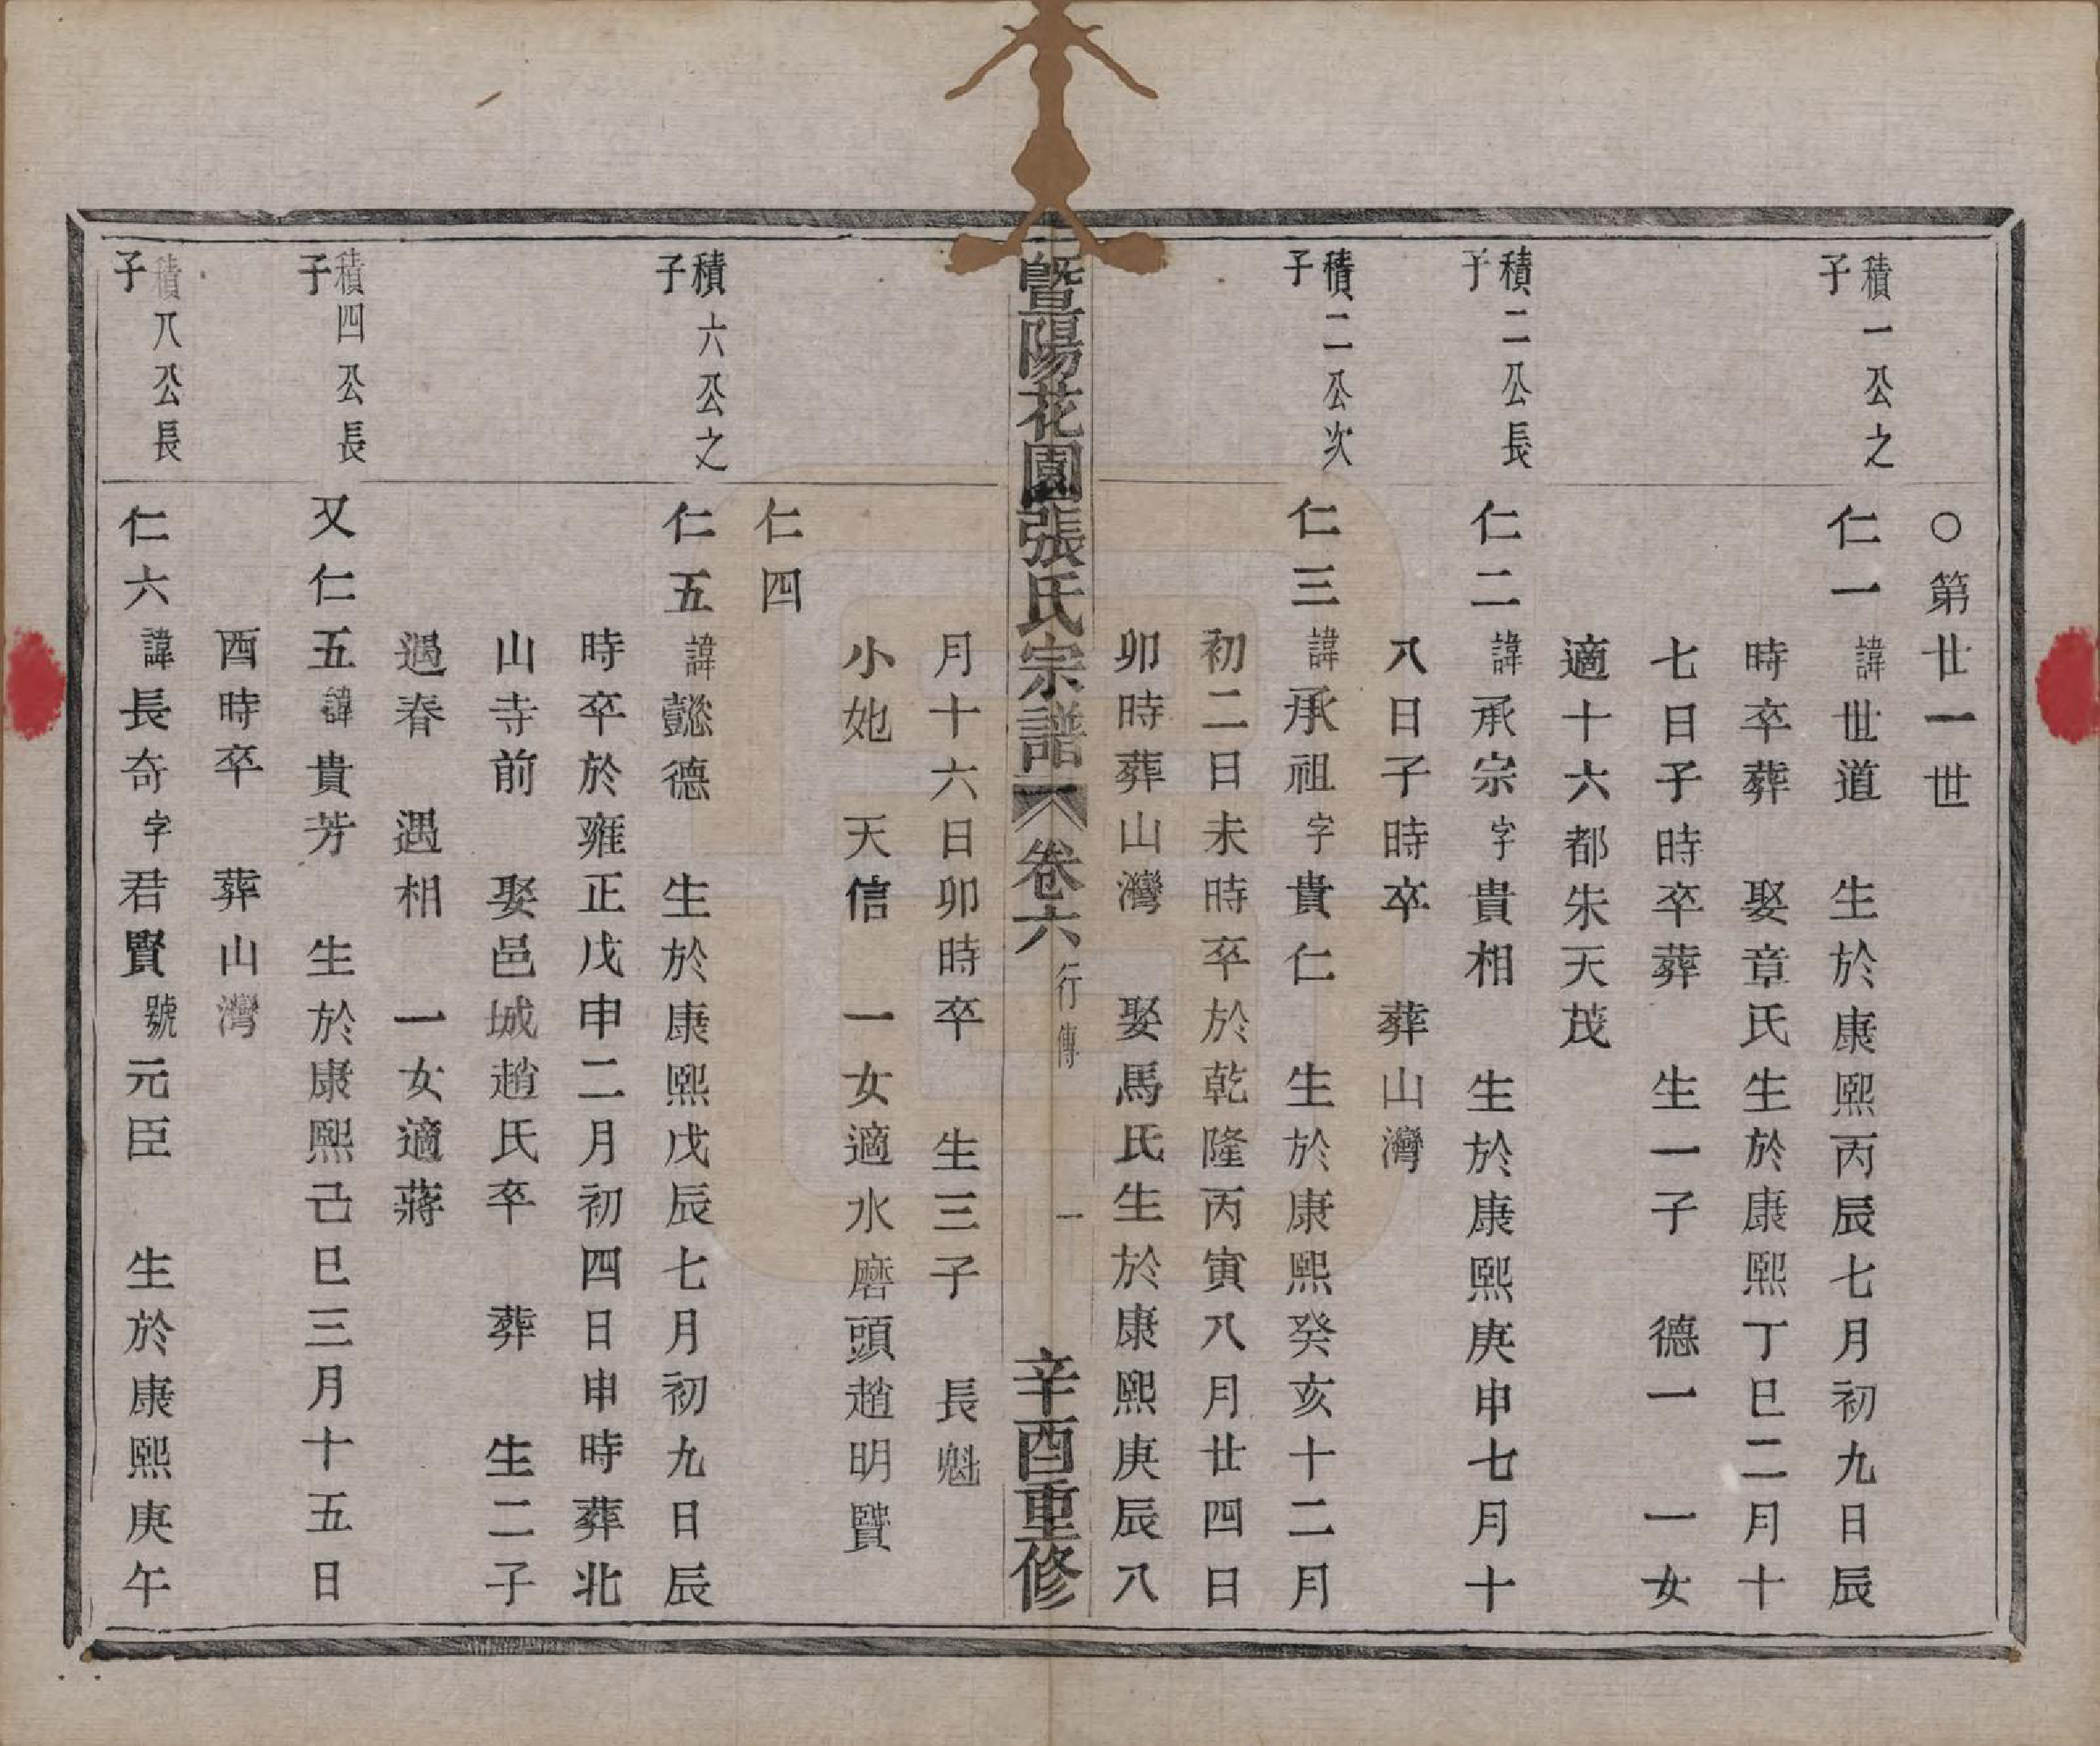 ○第廿一世
積一公之子
仁一諱世道 生於康熙丙辰七月初九日辰
時卒葬 娶章氏生於康熙丁巳二月十
七日子時卒葬 生一子 德一 一女
適十六都朱天茂
積二公長子
仁二諱承宗字貴相 生於康熙庚申七月十
八日子時卒 葬山灣
積二公次子
仁三諱承祖字貴仁 生於康熙癸亥十二月
初二日未時卒於乾隆丙寅八月廿四日
卯時葬山灣 娶馬氏生於康熙庚辰八
暨陽花園張氏宗譜 卷六 行傳 一 辛酉重修
月十六日卯時卒 生三子 長魁
小她 天信 一女適水磨頭趙明贒
仁四
積六公之子
仁五諱懿德 生於康熙戊辰七月初九日辰
時卒於雍正戊申二月初四日申時葬北
山寺前 娶邑城趙氏卒 葬 生二子
遇春 遇相 一女適蔣
積四公長子
又仁五諱貴芳 生於康熙己巳三月十五日
酉時卒 葬山灣
積八公長子
仁六諱長奇字君賢號元臣 生於康熙庚午